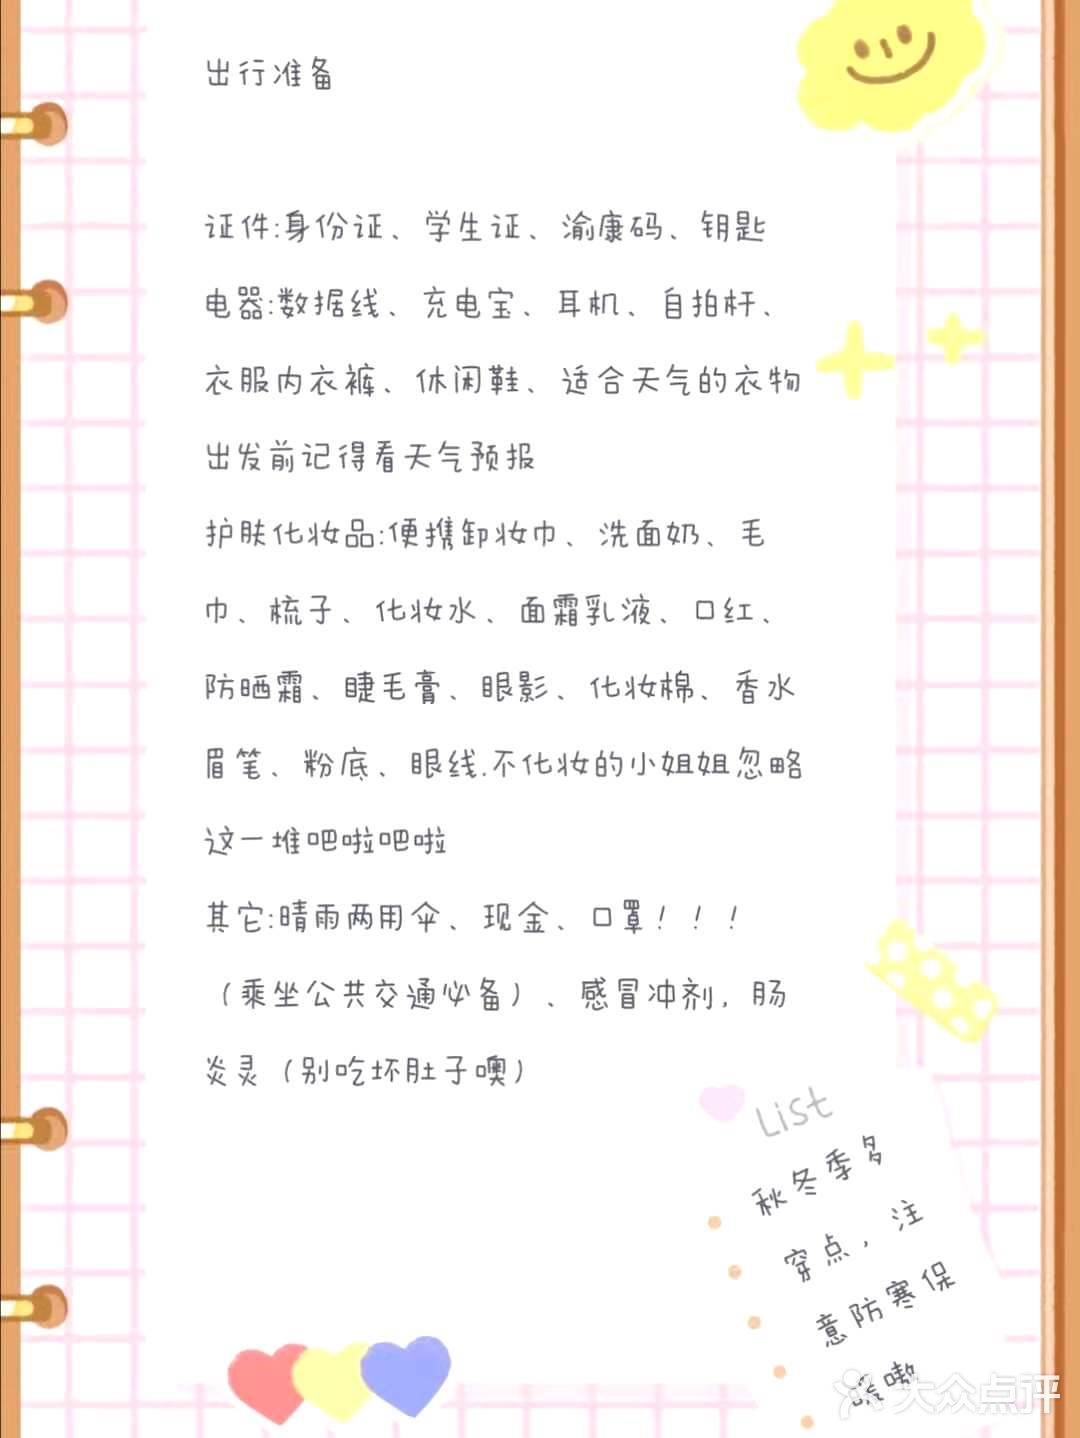 出行准备
证件:身份证、学生证、渝康码、钥匙
电器:数据线、充电宝、耳机、自拍杆、
衣服内衣裤、休闲鞋、适合天气的衣物
出发前记得看天气预报
护肤化妆品:便携卸妆巾、洗面奶、毛
巾、梳子、化妆水、面霜乳液、口红、
防晒霜、睫毛膏、眼影、化妆棉、香水
眉笔、粉底、眼线.不化妆的小姐姐忽略
这一堆吧啦吧啦
其它:晴雨两用伞、现金、口罩！！！
（乘坐公共交通必备）、感冒冲剂，肠
炎灵（别吃坏肚子噢）
List
秋冬季多
穿点，注
意防寒保
暖嗷
大众点评